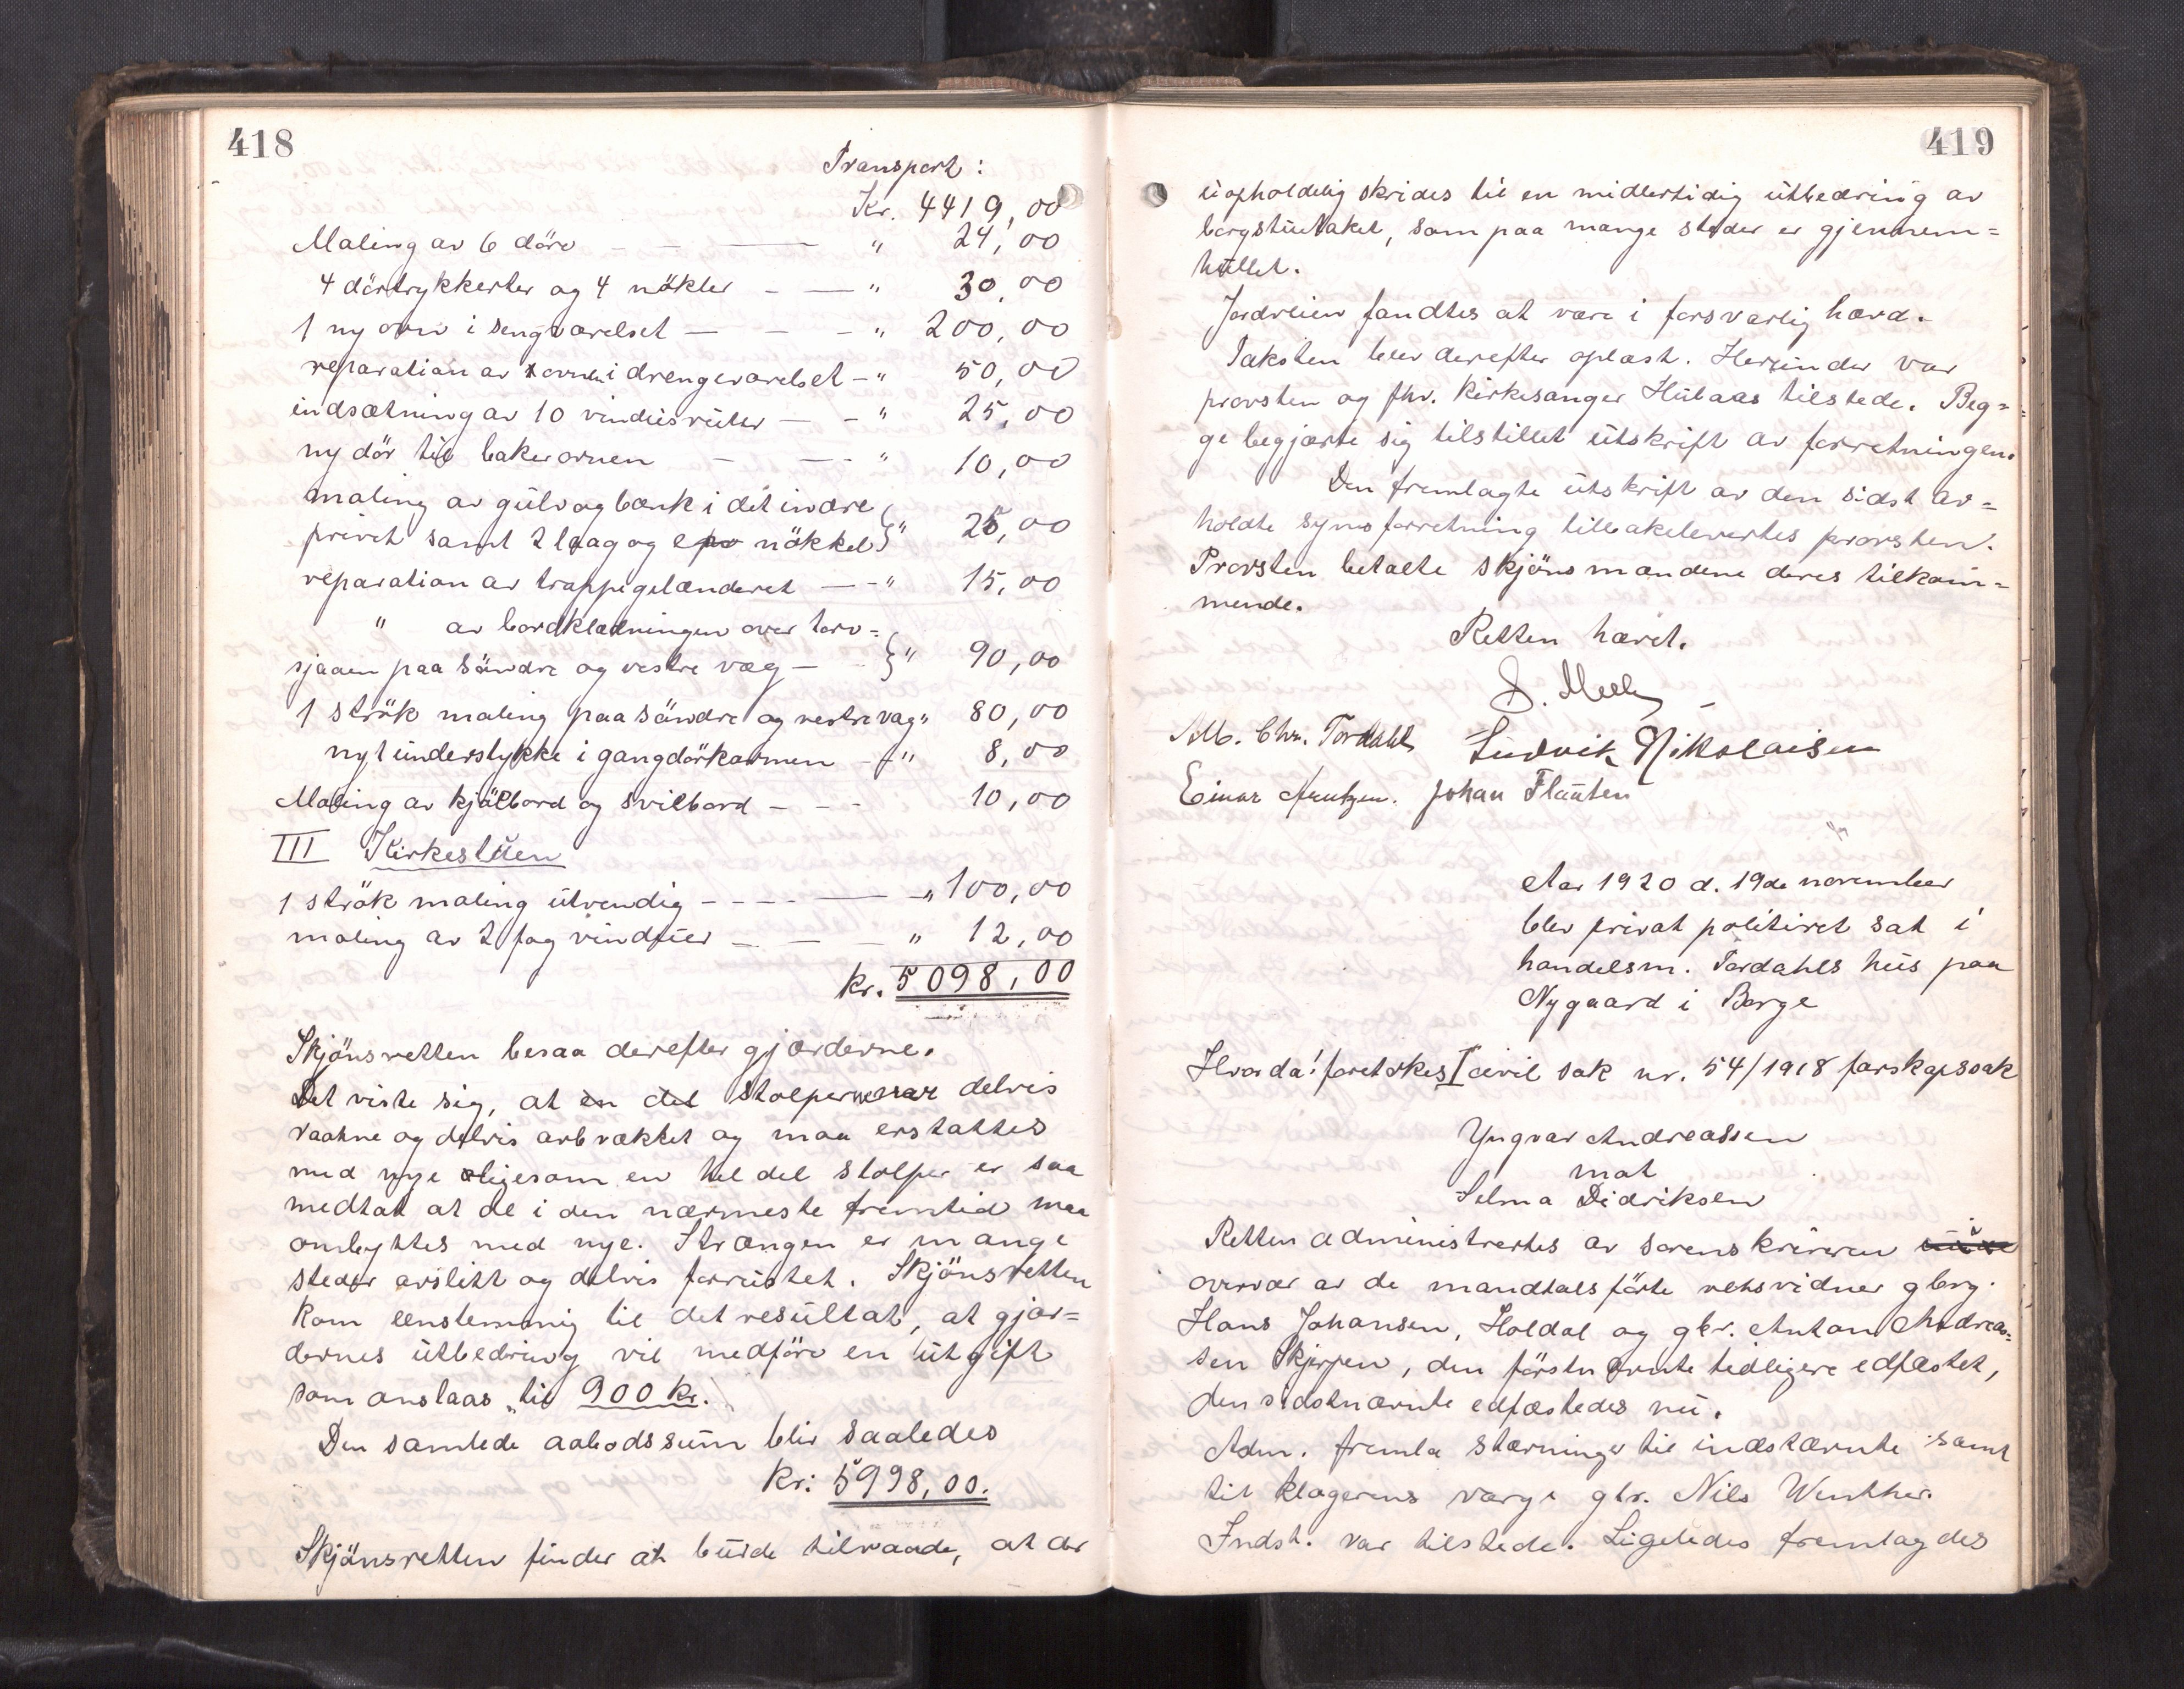 418
Transport:
Kr. 4419,00
Maling av 6 döre — — — " 24,00
4 dörtrykkerter og 4 nökler — — " 30,00
1 ny ovn i sengværelset — — — " 200,00
reparation av ovnen i drengeværelset — " 50,00
indsætning av 10 vindüsrüter — — " 25,00
ny dör til bakerovnen — — — " 10,00
maling av gülv og bænk i det indre
privet samt 2 laag og nökkel } " 25,00
reparation av trappegelænderet — — " 15,00
" av bordklædningen over torv=
sjaaen paa söndre og vestre væg — } " 90,00
1 strök maling paa söndre og vestre væg " 80,00
nyt understykke i gangdörkarmen — " 8,00
Maling av kjölbord og svilbord — — — 10,00
III Kirkestüen
1 strök maling ütvendig — — — — " 100,00
maling av 2 fag vindüer — — — " 12,00
kr. 5098,00
Skjönsretten besaa derefter gjærderne.
Det viste sig, at en del stolper var delvis
raatne og delvis avbrækket og maa erstattes
med nye ligesom en hel del stolper er saa
medtat at de i den nærmeste fremtid maa
ombyttes med nye. Strængen er mange
steder avslitt og delvis forrüstet. Skjönsretten
kom enstemmig til det resültat, at gjær=
dernes ütbedring vil medföre en ütgift
som anslaas til 900 kr.
Den samlede aabodssüm blir saaledes
kr: 5998,00.
Skjönsretten finder at bürde tilraade, at der
419
üopholdelig skrides til en midlertidig ütbedring av
borgstütaket, som paa mange steder er gjennem=
hüllet.
Jordveien fandtes at være i forsvarlig hævd.
Taksten blev derefter oplæst. Heründer var
provsten og fhv. kirkesanger Hülaas tilstede. Beg=
ge begjærte sig tilstillet ütskrift av forretningen.
Den fremlagte ütskrift av den sidst av=
holdte synsforretning tilbakelevertes provsten.
Provsten betalte skjönsmændene deres tilkom=
mende.
Retten hævet.
Alb. Chr. Tordahl Ludvik Nikolaisen
Einar Arntzen. Johan Flaüten
Aar 1920 d. 19de november
blev privat politiret sat i
handelsm. Tordahls hüs paa
Nygaard i Borge
Hvorda! foretokes I civil sak nr. 54/1918 farskapssak
Yngvar Andreassen
mot
Selma Didriksen
Retten administrertes av sorenskriveren i
overvær av de mandtalsförte retsvidner gbrg.
Hans Johansen, Holdal og gbr. Anton Andreas=
sen Skjerpen, den förstnævnte tidligere edfæstet,
den sidstnævnte edfæstedes nü.
Adm. fremla stævninger til indstævnte samt
til klagerens værge gbr. Nils Wenther.
Indst. var tilstede. Ligeledes fremlagdes